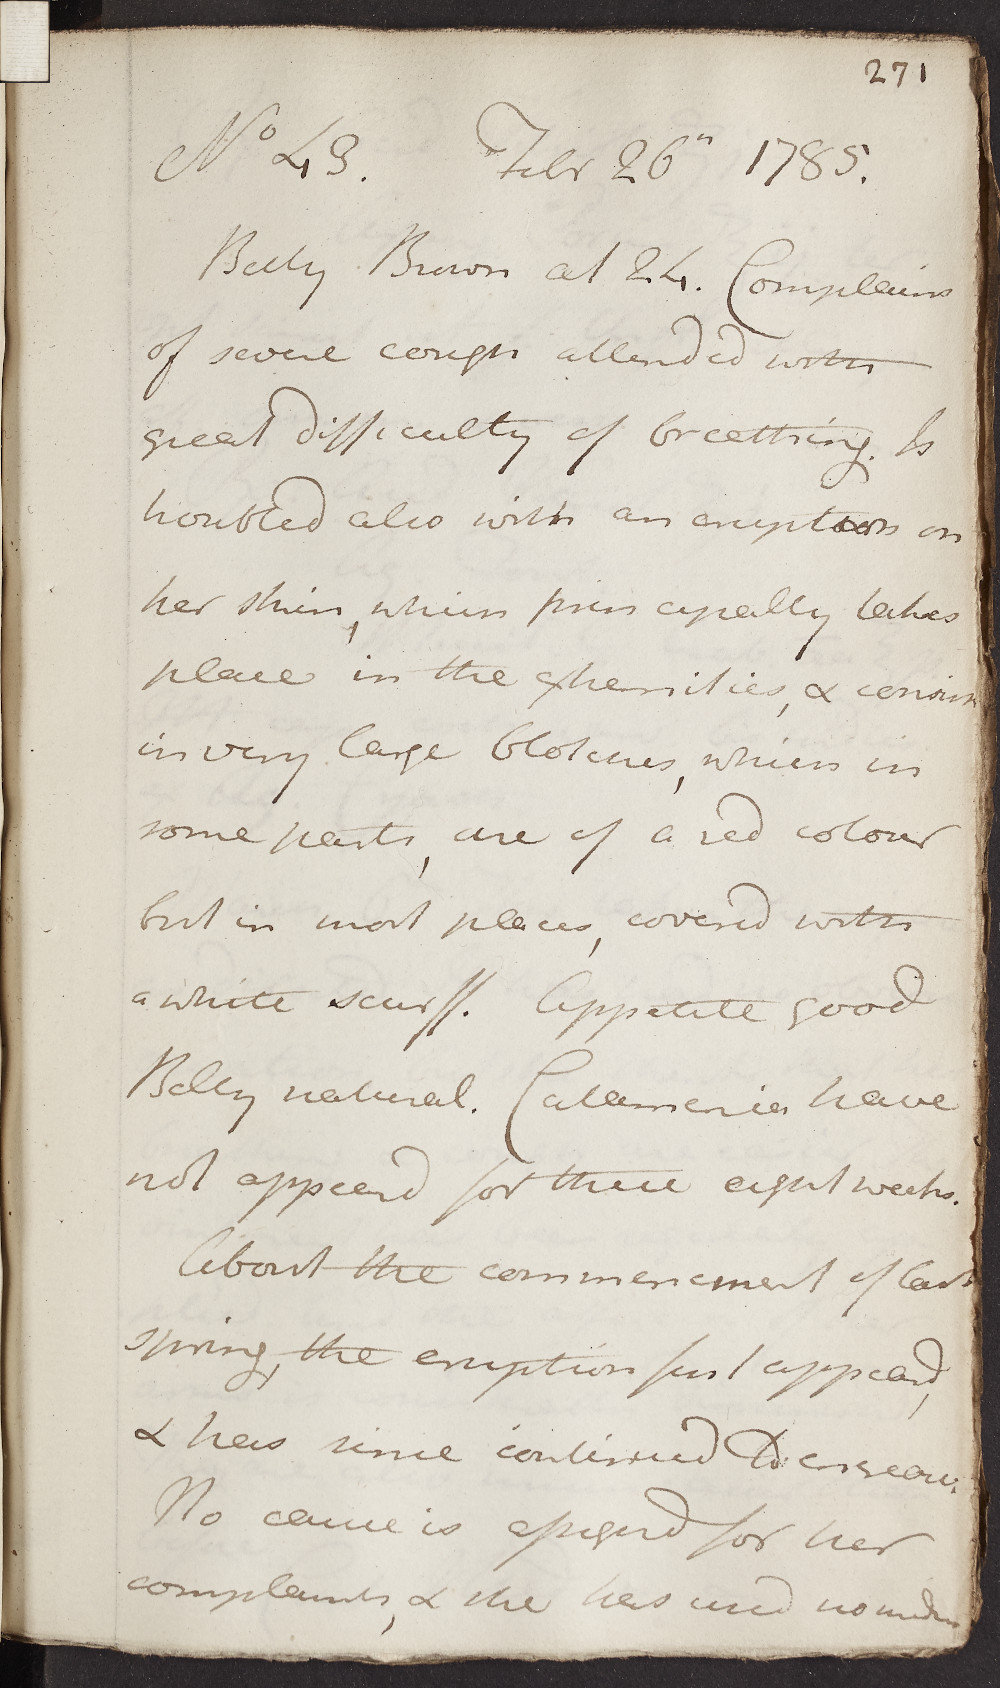 271
No 43. Febr 26th 1785.
Betty Brown aet 24. Complains
of severe cough attended with
great difficulty of breathing. Is
troubled also with an eruption on
her skin, which principally takes
place in the extremities, & consists
in very large blotches, which in
some parts, are of a red colour
but in most places, covered with
a white scurff. Appetite good
Belly natural. Catamenia have
not appeard for these eight weeks.
About the commencment of last
spring, the eruption first appeard,
& has since continued to encrease.
No cause is assignd for her
complaints, & she has used no